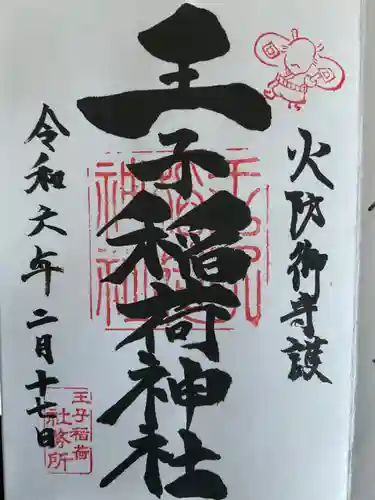 火防御守護
王子稲荷神社
令和六年二月十七日
王子稲荷
社務所